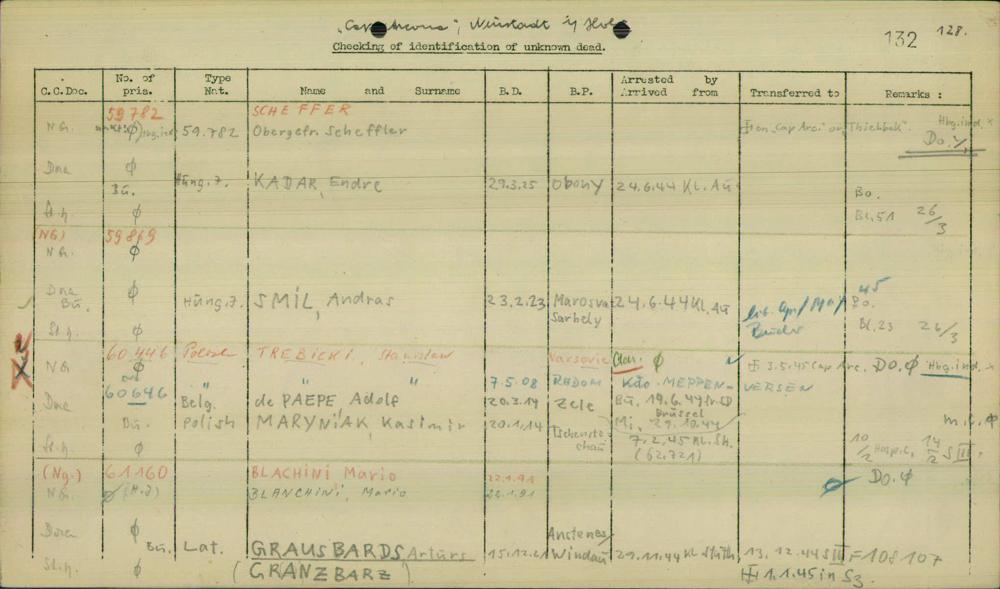 "Cap Arcona", Neustadt i/ Holst
132 128.
Checking of identification of unknown dead.
C.C.Doc. No. of pris. Type Nat. Name and Surname B.D. B.P. Arrested by Arrived from Transferred to Remarks :
59782 SCHEFFER
NG. Ø Hbg.ind 59.782 Obergefr. Scheffler "Cap Arc." or "Thielbek". Hbg.ind. x
Do.
Doa Ø
Bu. Hung.J. KADAR, Endre 29.3.25 Obony 24.6.44 Kl. Au Bo.
St.h. Ø Bl.51 26/3
NG) 59869
NG. Ø
Doa Ø 45
Bu. Hung.J. SMIL, Andras 23.2.23 Marosva 24.6.44 Kl. Au lib. Apr/May Bo.
Sarhely
St.h. Ø Bl.23 26/3
60.446 Polish TREBICKI, Stanislaw Varsovie Ø
NG Ø 3.5.45 Cap Arc. DO.Ø Hbg.ind. x
60646 " " " 7.5.08 RADOM Kdo. MEPPEN-VERSEN
Doa Belg. de PAEPE Adolf 20.3.14 Zele Bu. 19.6.44
Brüssel
Bu. Polish MARYNIAK, Kasimir 20.1.14 Tschenstochau Mi. 29.10.44
St.h. Ø 7.2.45 Kl. Sh. 10/2 Hospit. 14/2 S III
(62.721)
(Ng.) 61160 BLACHINI Mario 22.1.91 DO.Ø
NG. Ø (H.J) BLANCHINI, Mario 22.1.91
Dora Ø
Bu. Lat. GRAUSBARDS Arturs 15.12.21 Windau 29.11.44 Kl Stutth. 13.12.44 S III F 108 107
St.h. Ø (GRANZBARZ) 1.1.45 in S3.